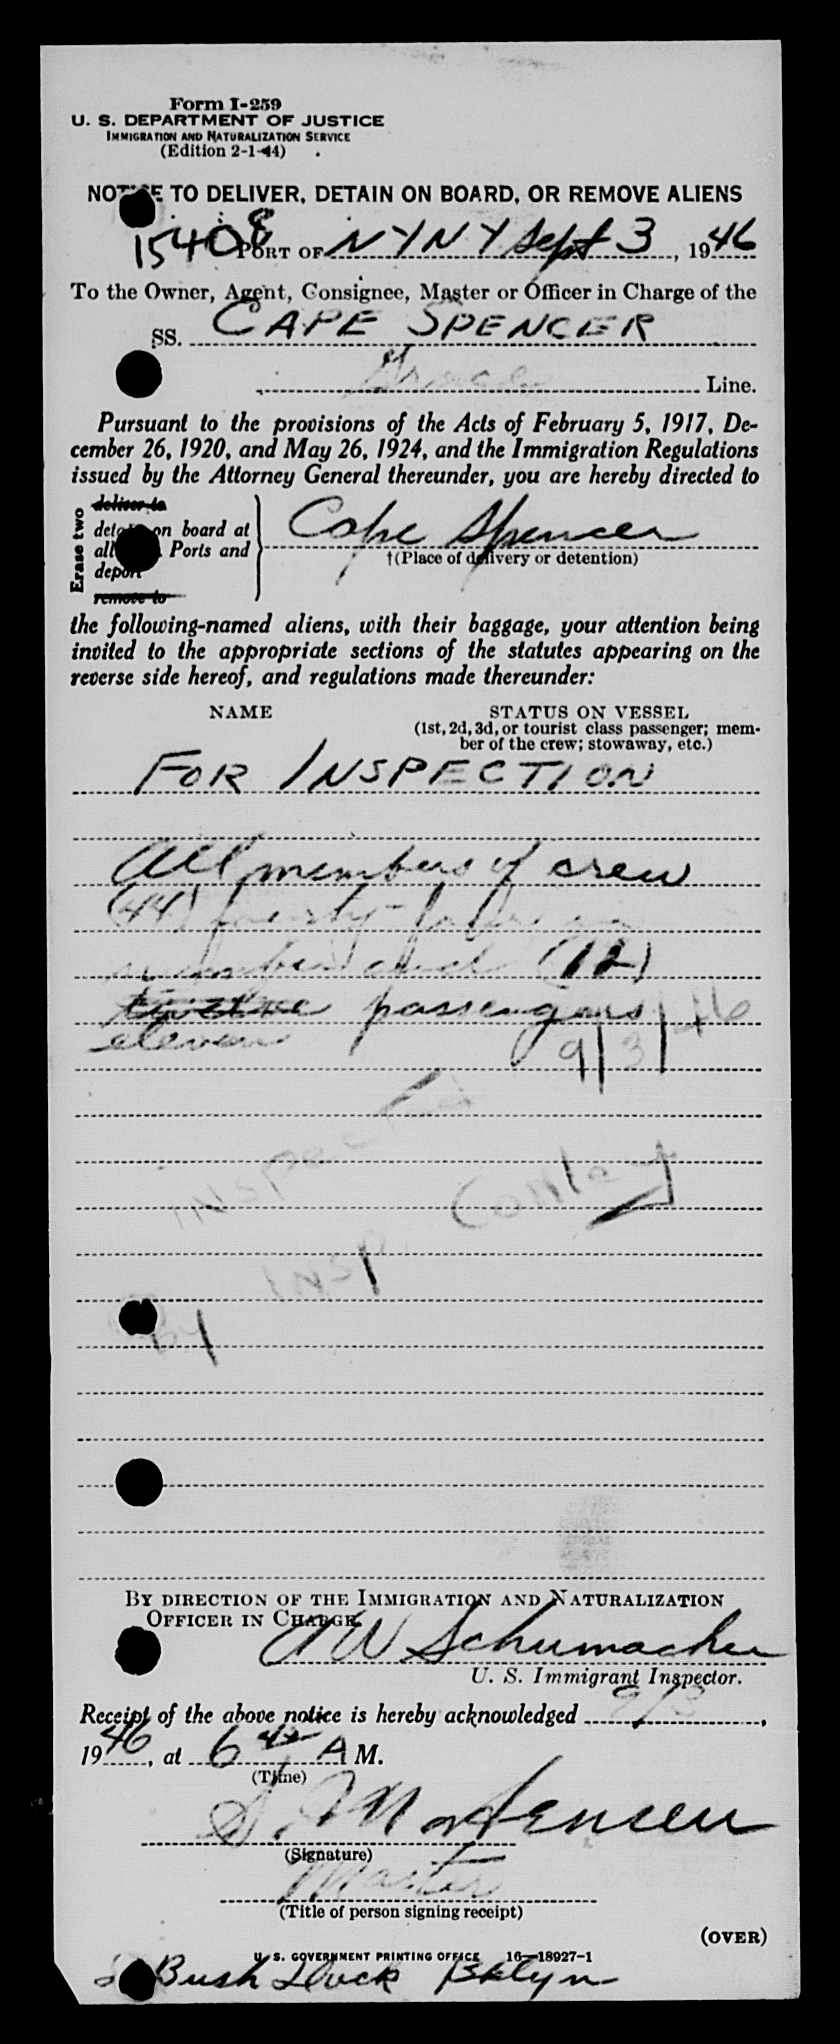 Form I-259
U. S. DEPARTMENT OF JUSTICE
IMMIGRATION AND NATURALIZATION SERVICE
(Edition 2-1-44)
NOTICE TO DELIVER, DETAIN ON BOARD, OR REMOVE ALIENS
15408 PORT OF NYNY Sept 3, 1946
To the Owner, Agent, Consignee, Master or Officer in Charge of the
SS. CAPE SPENCER
Line.
Pursuant to the provisions of the Acts of February 5, 1917, De-
cember 26, 1920, and May 26, 1924, and the Immigration Regulations
issued by the Attorney General thereunder, you are hereby directed to
Erase two
deliver to
detain on board at
all Ports and
deport
remove to
Cape Spencer
†(Place of delivery or detention)
the following-named aliens, with their baggage, your attention being
invited to the appropriate sections of the statutes appearing on the
reverse side hereof, and regulations made thereunder:
NAME STATUS ON VESSEL
(1st, 2d, 3d, or tourist class passenger; mem-
ber of the crew; stowaway, etc.)
FOR INSPECTION
All members of crew
(44) forty-four in
number and (12)
twelve passengers
eleven 9/3/46
INSPECTED
Conley
INSP.
by
BY DIRECTION OF THE IMMIGRATION AND NATURALIZATION
OFFICER IN CHARGE.
A W Schumacher
U. S. Immigrant Inspector.
Receipt of the above notice is hereby acknowledged 9/3,
1946, at 6 42 A M.
(Time)
S. Mortensen
(Signature)
Master
(Title of person signing receipt)
(OVER)
U. S. GOVERNMENT PRINTING OFFICE 16—18927-1
Bush Dock Bklyn